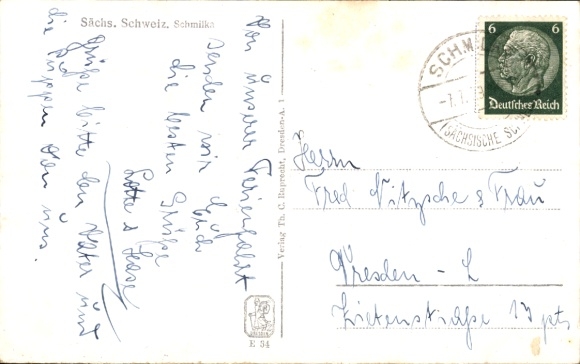 Sächs. Schweiz. Schmilka
Von unserer Ferienfahrt
senden wir Euch
die besten Grüße
Lotte & Hase
Grüße bitte den Vater und
die Puppen von uns.
Verlag Th. C. Ruprecht, Dresden-A. 1
E 34
6 6
Deutsches Reich
SCHMI
-7.7.
(SÄCHSISCHE SCH
Herrn
Fred Nitzsche & Frau
Dresden - L
Zietenstraße 13 ptr